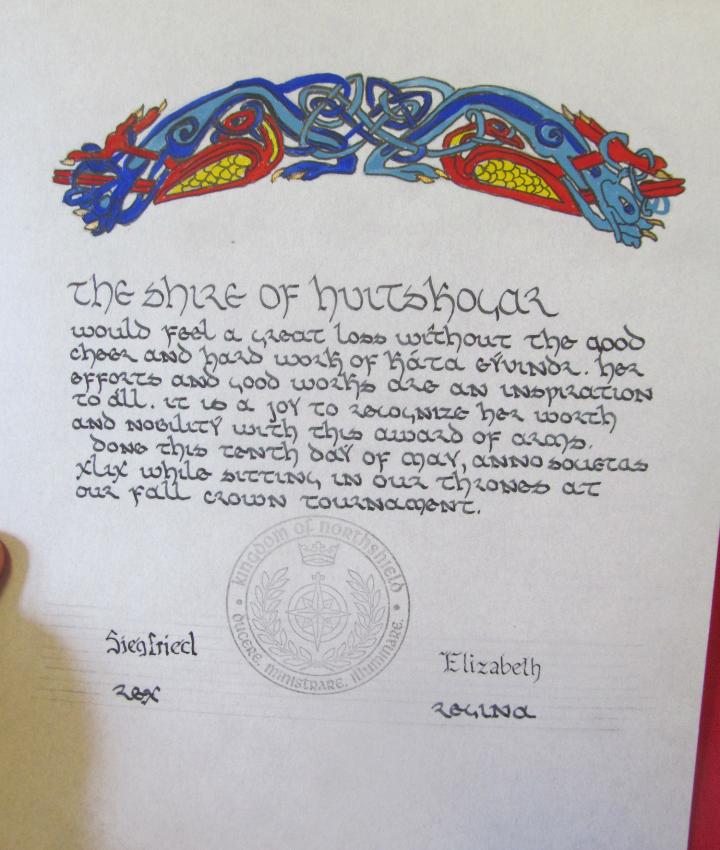 the shire of huitskogar
would feel a great loss without the good
cheer and hard work of káta eÿvindr. her
efforts and good works are an inspiration
to all. it is a joy to recognize her worth
and nobility with this award of arms.
done this tenth day of may, anno societas
xlix while sitting in our thrones at
our fall crown tournament.
kingdom of northshield
ducere, ministrare, illuminare.
Siegfried
rex
Elizabeth
regina